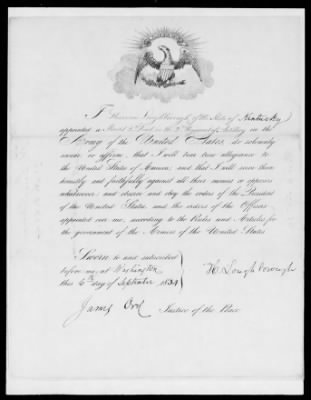 I Harrison Loughborough, of the State of Kentucky
appointed a Brevet 2d Lieut in the 2d Regiment of Artillery in the
Army of the United States, do solemnly
swear or affirm, that I will bear true allegiance to
the United States of America, and that I will serve them
honestly and faithfully against all their enemies or opposers
whatsoever; and observe and obey the orders of the President
of the United States, and the orders of the Officers
appointed over me; according to the Rules and Articles for
the government of the Armies of the United States
Sworn to and subscribed
before me, at Washington
this 6th day of September 1834
H Loughborough
James Ord Justice of the Peace